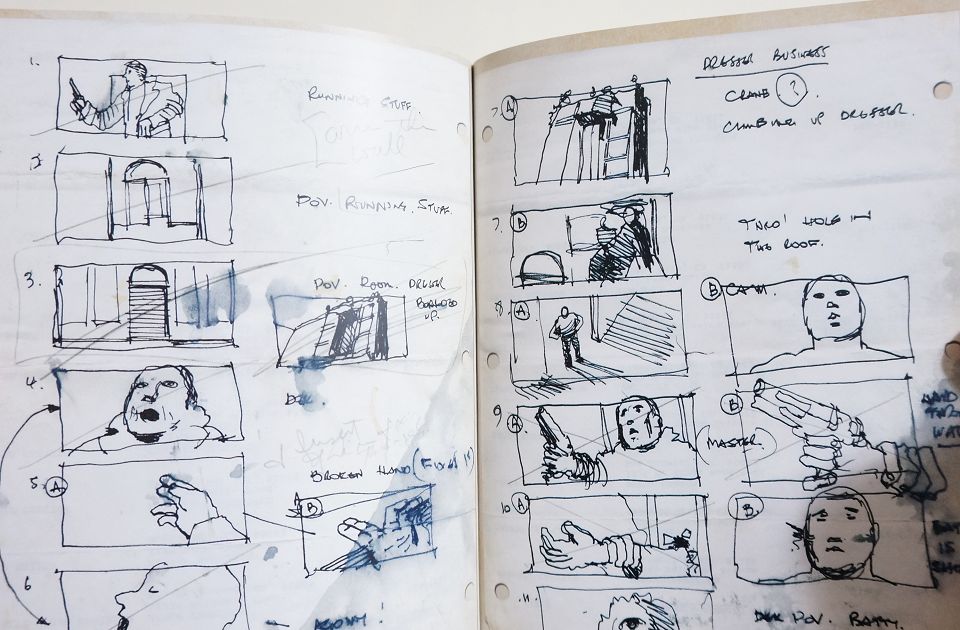 1.
RUNNING STUFF.
2.
POV. RUNNING. STUFF.
3.
POV. ROOM. DRESSER
BOARDED
UP.
4.
DEK.
5.
A
BROKEN HAND (FIXES IT)
B
6
AGONY!
DRESSER BUSINESS
7. A
CRANE ?.
CLIMBING UP DRESSER.
7. B
THRO' HOLE IN
THE ROOF.
8. A
B CAM.
9. A
(MASTER)
B
HAND
THRO
WALL
10 A
B.
BATTY
IS
11.
DEK POV. BATTY.